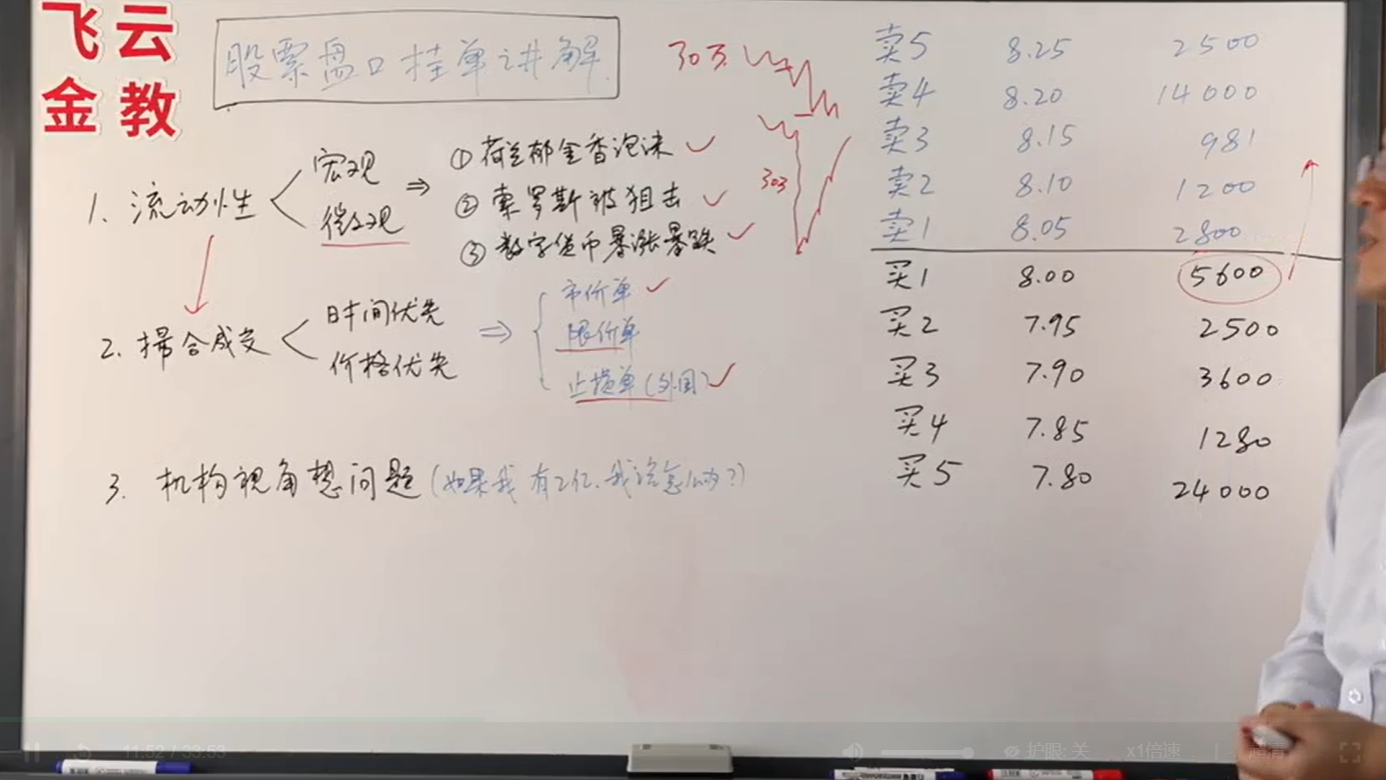 飞云
金教
股票盘口挂单讲解
30万
1. 流动性
宏观
微观
⇒
① 荷兰郁金香泡沫 ✓
② 索罗斯被狙击 ✓
③ 数字货币暴涨暴跌 ✓
303
2. 撮合成交
时间优先
价格优先
⇒
市价单 ✓
限价单
止损单(外国) ✓
3. 机构视角想问题(如果我有2亿、我该怎么办?)
卖5 8.25 2500
卖4 8.20 14000
卖3 8.15 981
卖2 8.10 1200
卖1 8.05 2800
买1 8.00 5600
买2 7.95 2500
买3 7.90 3600
买4 7.85 1280
买5 7.80 24000
11:52 / 33:53
护眼: 关
x1倍速